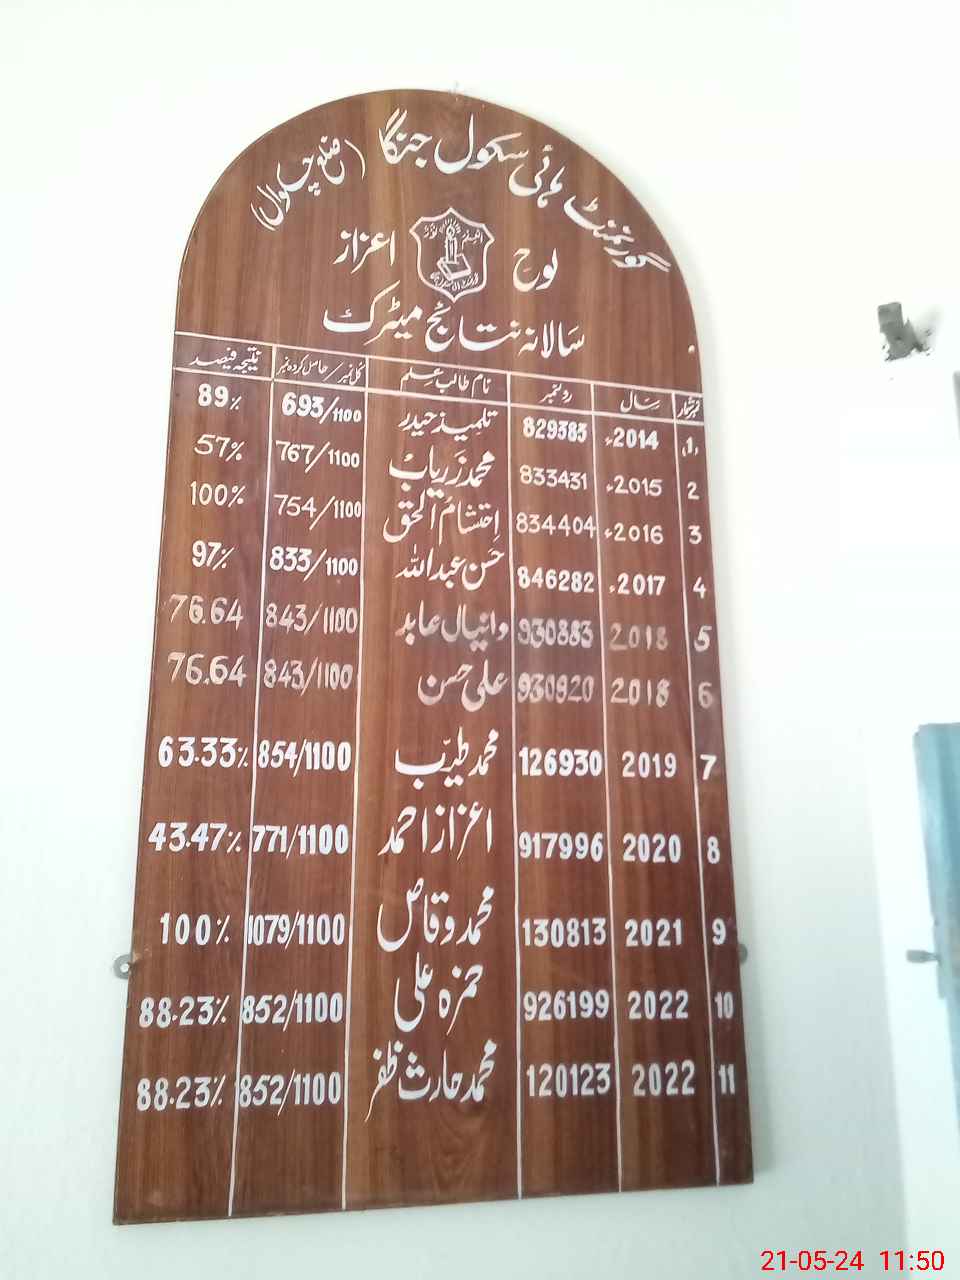 گورنمنٹ ہائی سکول جنگا (ضلع چکوال)
لوح اعزاز
سالانہ نتائج میٹرک
نمبر شمار سال رولنمبر نام طالب علم کل نمبر/حاصل کردہ نمبر نتیجہ فیصد
(1) 2014ء 829383 تلمیذ حیدر 693/1100 89%
2 2015ء 833431 محمد زریاب 767/1100 57%
3 2016ء 834404 احتشام الحق 754/1100 100%
4 2017ء 846282 حسن عبداللہ 833/1100 97%
5 2018 930883 دانیال عابد 843/1100 76.64
6 2018 930820 علی حسن 843/1100 76.64
7 2019 126930 محمد طیب 854/1100 63.33%
8 2020 917996 اعزاز احمد 771/1100 43.47%
9 2021 130813 محمد وقاص 1079/1100 100%
10 2022 926199 حمزہ علی 852/1100 88.23%
11 2022 120123 محمد حارث ظفر 852/1100 88.23%
21-05-24 11:50